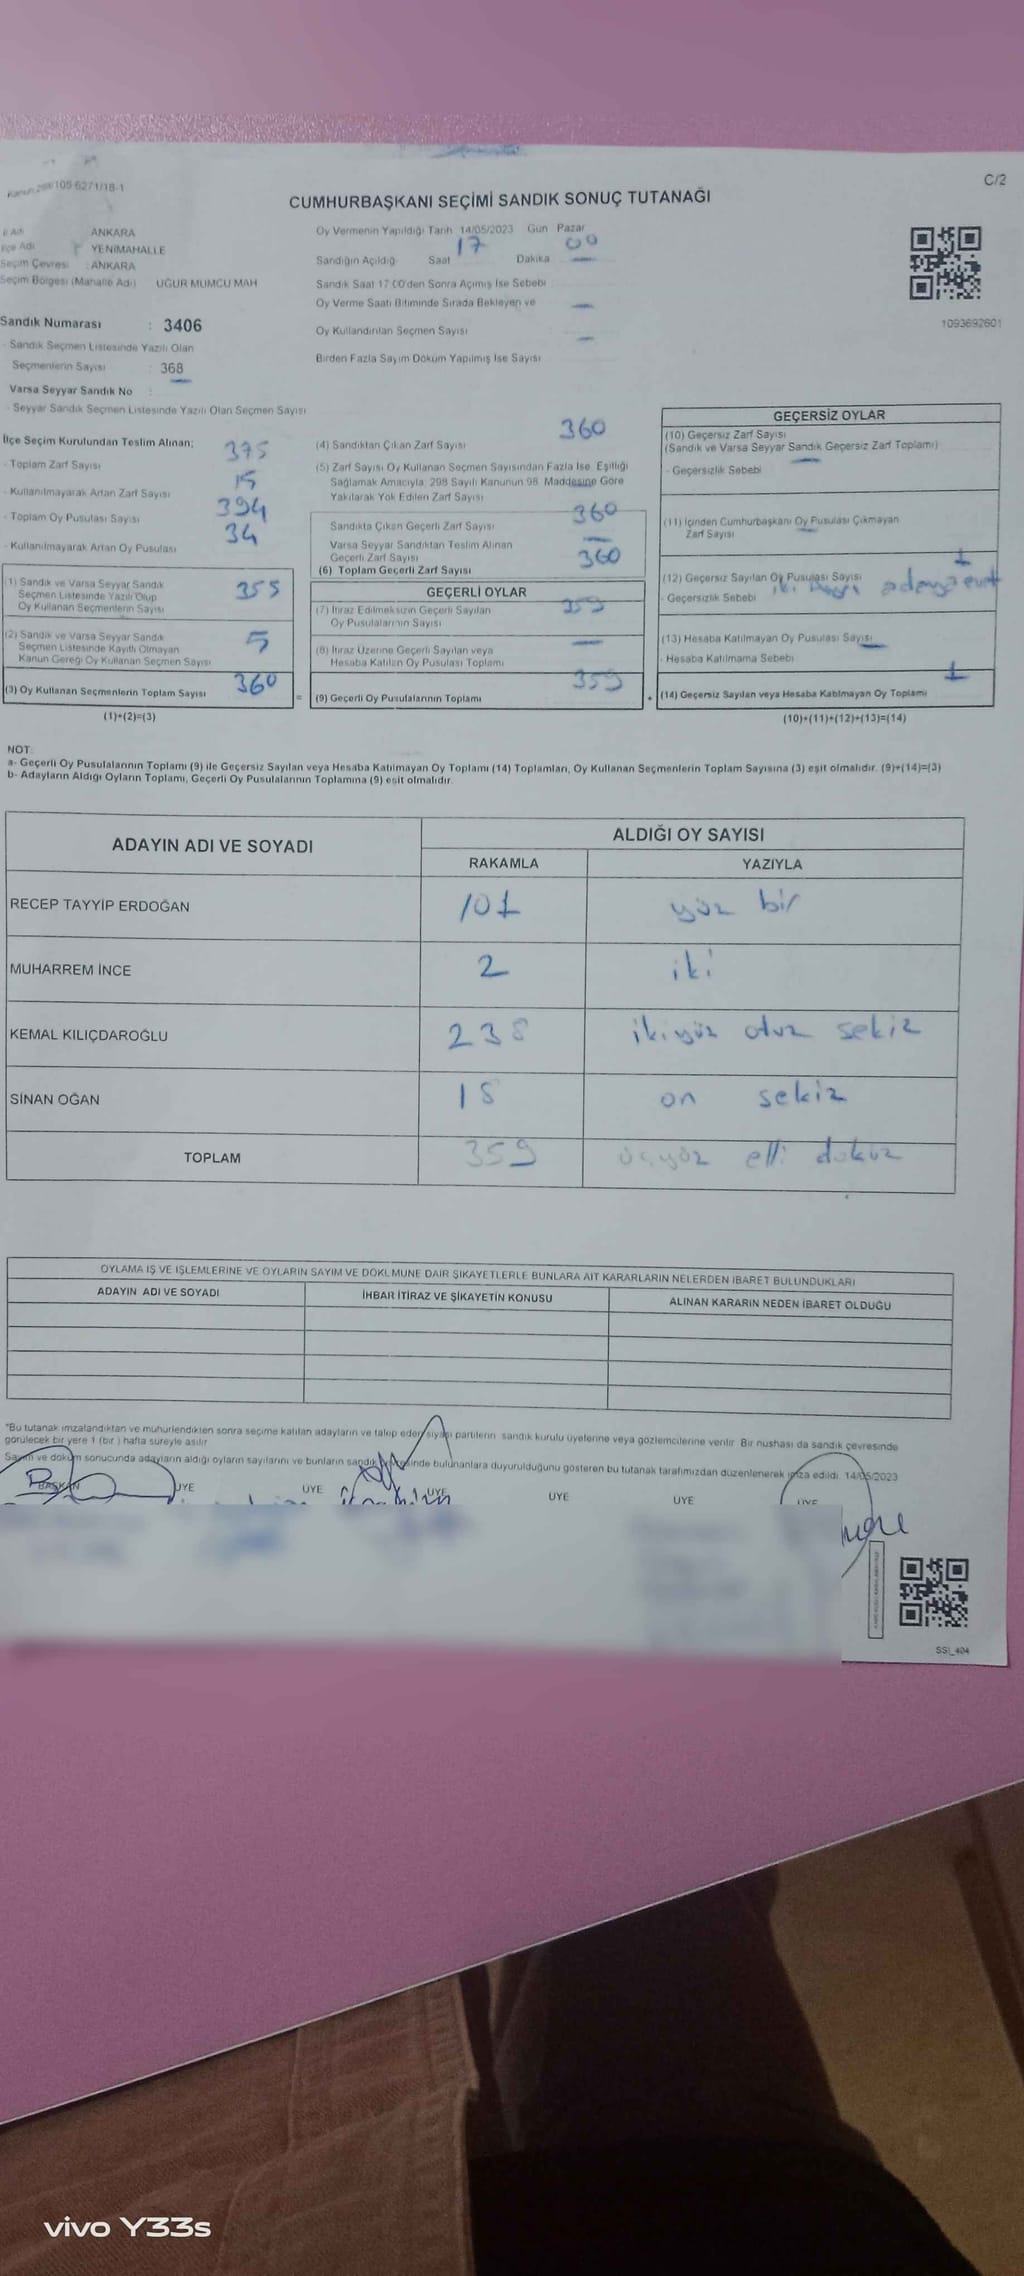 C/2
CUMHURBAŞKANI SEÇİMİ SANDIK SONUÇ TUTANAĞI
ANKARA
YENİMAHALLE
Seçim Çevresi : ANKARA
Seçim Bölgesi (Mahalle Adı) UĞUR MUMCU MAH
Sandık Numarası : 3406
- Sandık Seçmen Listesinde Yazılı Olan
Seçmenlerin Sayısı : 368
Varsa Seyyar Sandık No :
- Seyyar Sandık Seçmen Listesinde Yazılı Olan Seçmen Sayısı
Oy Vermenin Yapıldığı Tarih 14/05/2023 Gün Pazar
Sandığın Açıldığı Saat 17 Dakika 00
Sandık Saat 17.00'den Sonra Açımış İse Sebebi
Oy Verme Saati Bitiminde Sırada Bekleyen ve
Oy Kullandırılan Seçmen Sayısı
Birden Fazla Sayım Döküm Yapılmış İse Sayısı
1093692601
İlçe Seçim Kurulundan Teslim Alınan;
- Toplam Zarf Sayısı 375
- Kullanılmayarak Artan Zarf Sayısı 15
- Toplam Oy Pusulası Sayısı 394
- Kullanılmayarak Artan Oy Pusulası 34
(1) Sandık ve Varsa Seyyar Sandık
Seçmen Listesinde Yazılı Olup
Oy Kullanan Seçmenlerin Sayısı 355
(2) Sandık ve Varsa Seyyar Sandık
Seçmen Listesinde Kayıtlı Olmayan
Kanun Gereği Oy Kullanan Seçmen Sayısı 5
(3) Oy Kullanan Seçmenlerin Toplam Sayısı 360
(1)+(2)=(3)
(4) Sandıktan Çıkan Zarf Sayısı 360
(5) Zarf Sayısı Oy Kullanan Seçmen Sayısından Fazla İse, Eşitliği
Sağlamak Amacıyla, 298 Sayılı Kanunun 98. Maddesine Göre
Yakılarak Yok Edilen Zarf Sayısı
Sandıkta Çıkan Geçerli Zarf Sayısı 360
Varsa Seyyar Sandıktan Teslim Alınan
Geçerli Zarf Sayısı
(6) Toplam Geçerli Zarf Sayısı 360
GEÇERLİ OYLAR
(7) İtiraz Edilmeksizin Geçerli Sayılan
Oy Pusulalarının Sayısı 359
(8) İtiraz Üzerine Geçerli Sayılan veya
Hesaba Katılan Oy Pusulası Toplamı
(9) Geçerli Oy Pusulalarının Toplamı 359
GEÇERSİZ OYLAR
(10) Geçersiz Zarf Sayısı
(Sandık ve Varsa Seyyar Sandık Geçersiz Zarf Toplamı)
- Geçersizlik Sebebi
(11) İçinden Cumhurbaşkanı Oy Pusulası Çıkmayan
Zarf Sayısı
(12) Geçersiz Sayılan Oy Pusulası Sayısı 1
- Geçersizlik Sebebi
(13) Hesaba Katılmayan Oy Pusulası Sayısı
- Hesaba Katılmama Sebebi
(14) Geçersiz Sayılan veya Hesaba Katılmayan Oy Toplamı 1
(10)+(11)+(12)+(13)=(14)
NOT:
a- Geçerli Oy Pusulalarının Toplamı (9) ile Geçersiz Sayılan veya Hesaba Katılmayan Oy Toplamı (14) Toplamları, Oy Kullanan Seçmenlerin Toplam Sayısına (3) eşit olmalıdır. (9)+(14)=(3)
b- Adayların Aldığı Oyların Toplamı, Geçerli Oy Pusulalarının Toplamına (9) eşit olmalıdır.
ADAYIN ADI VE SOYADI ALDIĞI OY SAYISI
RAKAMLA YAZIYLA
RECEP TAYYİP ERDOĞAN 101 yüz bir
MUHARREM İNCE 2 iki
KEMAL KILIÇDAROĞLU 238 ikiyüz otuz sekiz
SİNAN OĞAN 18 on sekiz
TOPLAM 359 üçyüz elli dokuz
OYLAMA İŞ VE İŞLEMLERİNE VE OYLARIN SAYIM VE DÖKÜMÜNE DAİR ŞİKAYETLERLE BUNLARA AİT KARARLARIN NELERDEN İBARET BULUNDUKLARI
ADAYIN ADI VE SOYADI İHBAR İTİRAZ VE ŞİKAYETİN KONUSU ALINAN KARARIN NEDEN İBARET OLDUĞU
*Bu tutanak imzalandıktan ve mühürlendikten sonra seçime katılan adayların ve talep eden siyasi partilerin sandık kurulu üyelerine veya gözlemcilerine verilir. Bir nushası da sandık çevresinde
görülecek bir yere 1 (bir) hafta süreyle asılır
Sayım ve döküm sonucunda adayların aldığı oyların sayılarını ve bunların sandık çevresinde bulunanlara duyurulduğunu gösteren bu tutanak tarafımızdan düzenlenerek imza edildi. 14/05/2023
BAŞKAN ÜYE ÜYE ÜYE ÜYE ÜYE ÜYE
SSİ_404
vivo Y33s